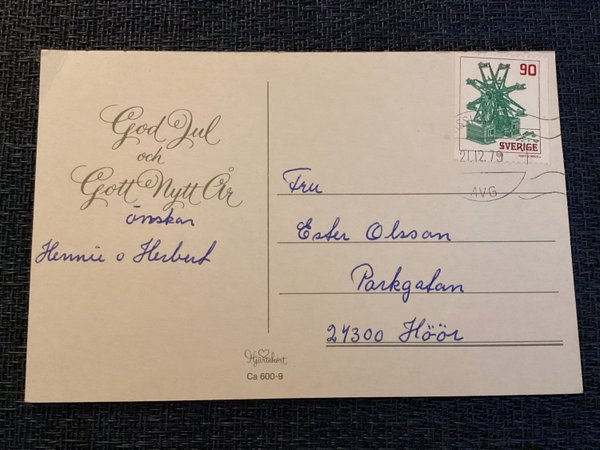 God Jul
och
Gott Nytt År
önskar
Hennie o Herbert
Hjärtekort
Ca 600-9
90
SVERIGE
21.12.79
AVG
Fru
Ester Olsson
Parkgatan
24300 Höör